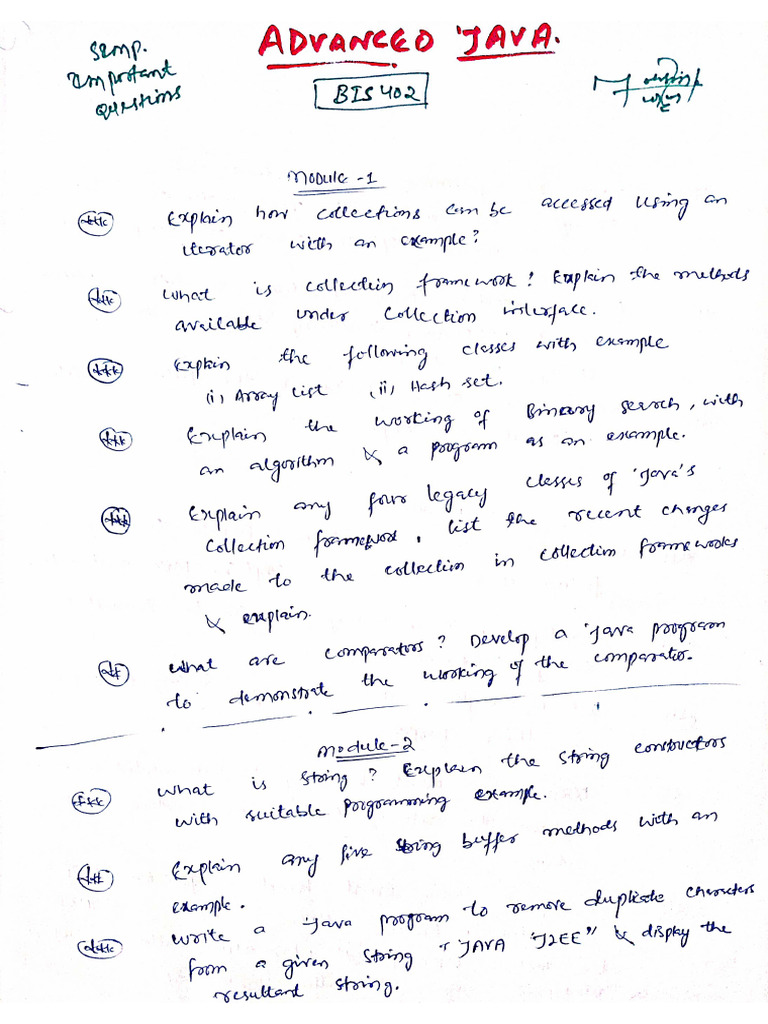 ADVANCED JAVA.
Important
Questions
BIS402
Module-1
*** Explain how collections can be accessed using an
iterator with an example?
** What is collection framework? Explain the methods
available under collection interface.
*** Explain the following classes with example
(i) Array List (ii) Hash set.
*** Explain the working of Binary search, with
an algorithm & a program as an example.
*** Explain any four legacy classes of Java's
Collection framework. List the recent changes
made to the collection in collection frameworks
& explain.
** What are comparators? Develop a Java program
to demonstrate the working of the comparator.
Module-2
*** What is string? Explain the string constuctors
with suitable programming example.
** Explain any five string buffer methods with an
example.
*** Write a Java program to remove duplicate characters
from a given string "JAVA J2EE" & display the
resultant string.